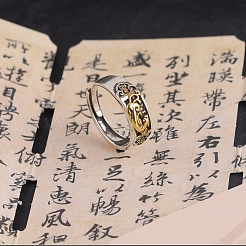 湍帶左右引以
列坐其次雖無絲竹
盛一
足以暢叙
是日也天朗氣清惠風和
觀宇宙之大